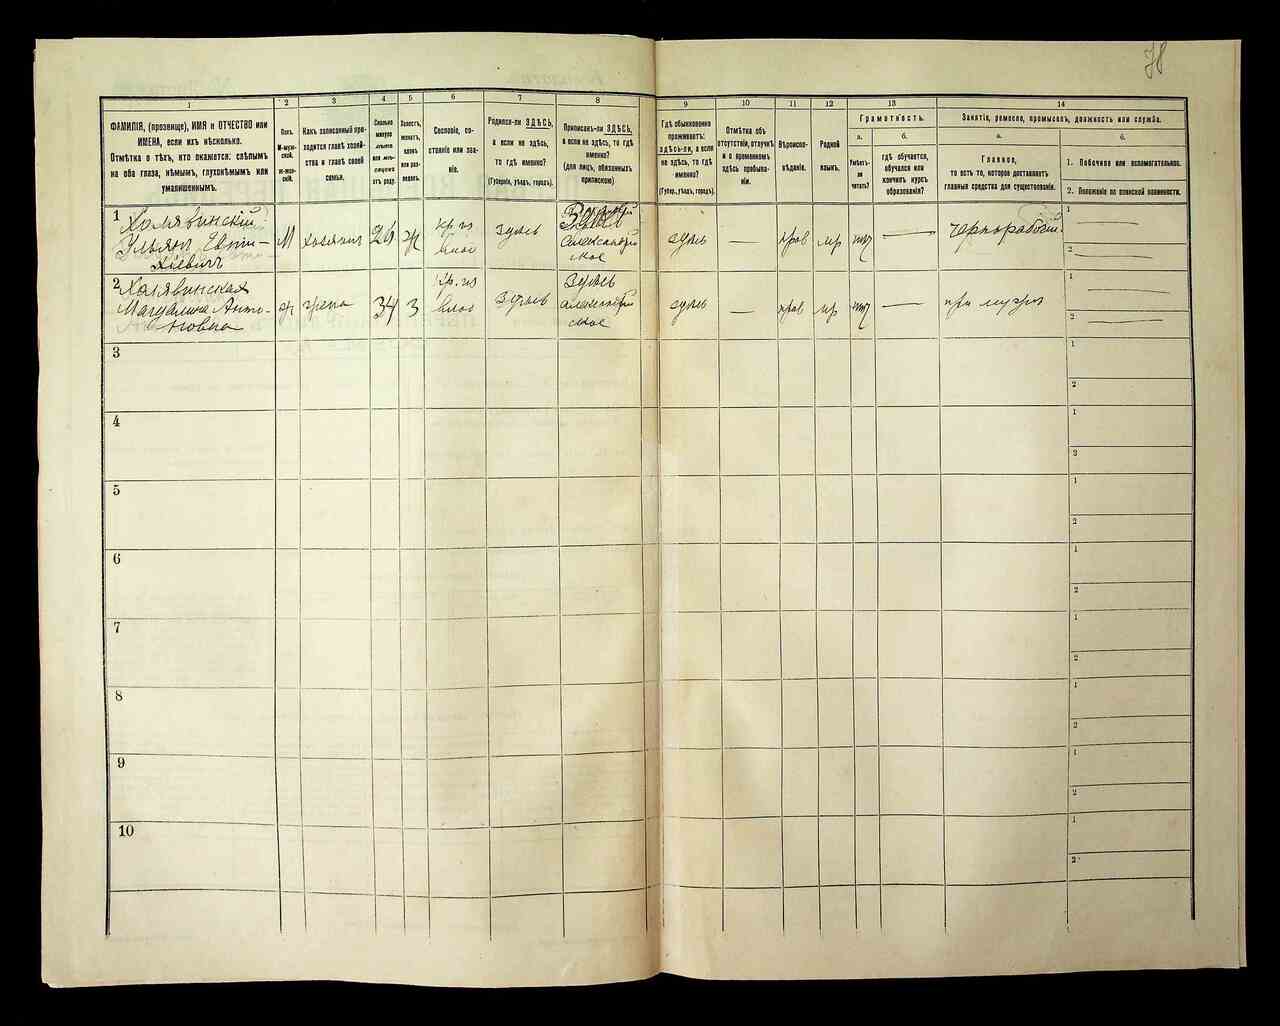 78
1
2
3
4
5
6
7
8
9
10
11
12
13
14
ФАМИЛІЯ, (прозвище), ИМЯ и ОТЧЕСТВО или
ИМЕНА, если ихъ нѣсколько.
Отмѣтка о тѣхъ, кто окажется: слѣпымъ
на оба глаза, нѣмымъ, глухонѣмымъ или
умалишеннымъ.
Полъ.
М-муж-
ской.
Ж-жен-
скій.
Какъ записанный при-
ходится главѣ хозяй-
ства и главѣ своей
семьи.
Сколько
минуло
лѣтъ
или мѣ-
сяцевъ
отъ роду.
Холостъ,
женатъ,
вдовъ
или раз-
веденъ.
Сословіе, со-
стояніе или зва-
ніе.
Родился-ли ЗДѢСЬ,
а если не здѣсь,
то гдѣ именно?
(Губернія, уѣздъ, городъ).
Приписанъ-ли ЗДѢСЬ,
а если не здѣсь, то гдѣ
именно?
(для лицъ, обязанныхъ
припискою)
Гдѣ обыкновенно
проживаетъ:
здѣсь-ли, а если
не здѣсь, то гдѣ
именно?
(Губер.,уѣздъ, городъ).
Отмѣтка объ
отсутствіи, отлучкѣ
и о временномъ
здѣсь пребыва-
ніи.
Вѣроиспо-
вѣданіе.
Родной
языкъ.
Грамотность.
а.
Умѣетъ-
ли
читать?
б.
гдѣ обучается,
обучался или
кончилъ курсъ
образованія?
Занятіе, ремесло, промыселъ, должность или служба.
а.
Главное,
то есть то, которое доставляетъ
главныя средства для существованія.
б.
1. Побочное или вспомогательное.
2. Положеніе по воинской повинности.
1 Холявинскій
Ульянъ Евти-
хіевичъ
М
хозяинъ
26
ж
кр. из
влас
здѣсь
Александрій
ское
здѣсь
—
прав
мр
нт
—
чернорабочій
1
2
2 Холявинская
Магдалина Анто-
новна
ж
жена
34
з
кр. из
влас
здѣсь
здѣсь
александрій
ское
здѣсь
—
прав
мр
нт
—
при мужѣ
1
2
3
1
2
4
1
2
5
1
2
6
1
2
7
1
2
8
1
2
9
1
2
10
1
2